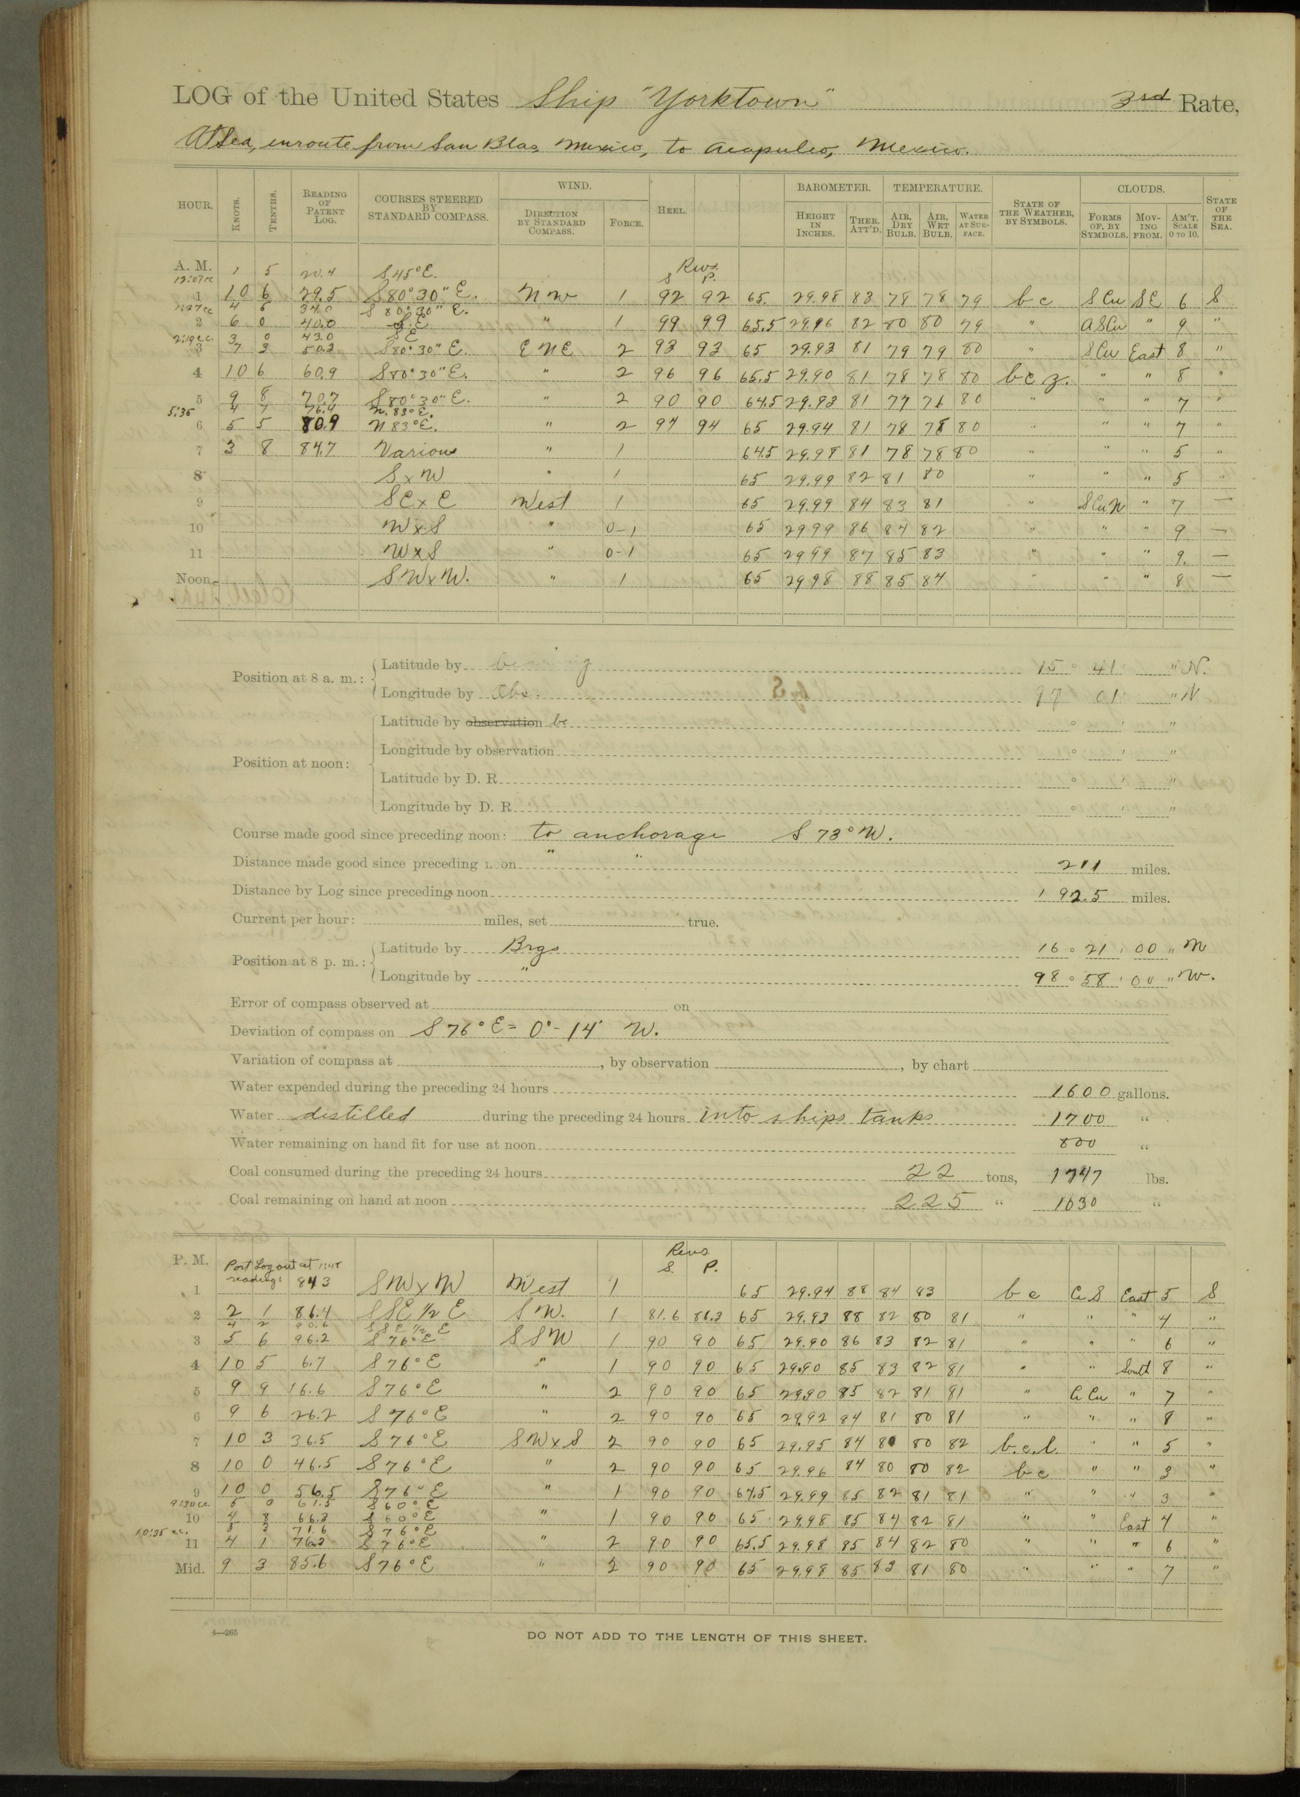 LOG of the United States Ship "Yorktown" 3rd Rate,
At Sea, enroute from San Blas, Mexico, to Acapulco, Mexico.
HOUR. KNOTS. TENTHS. READING OF PATENT LOG. COURSES STEERED BY STANDARD COMPASS. WIND. DIRECTION BY STANDARD COMPASS. FORCE. HEEL. BAROMETER. HEIGHT IN INCHES. THER. ATT'D. TEMPERATURE. AIR, DRY BULB. AIR, WET BULB. WATER AT SURFACE. STATE OF THE WEATHER, BY SYMBOLS. CLOUDS. FORMS OF, BY SYMBOLS. MOVING FROM. AM'T. SCALE 0 TO 10. STATE OF THE SEA.
A. M. 1 5 20.4 S45°E. Revs. S P.
1 10 6 29.5 S80°30"E. NW 1 92 92 65 29.98 83 78 78 79 bc SCu SE 6 S
4 5 34.0 S80°30"E.
2 6 0 40.0 SE " 1 99 99 65.5 29.96 82 80 80 79 " ASCu " 9 "
3 0 43.0 SE
3 7 3 50.3 S80°30"E. ENE 2 93 93 65 29.93 81 79 79 80 " SCu East 8 "
4 10 6 60.9 S80°30"E. " 2 96 96 65.5 29.90 81 78 78 80 bcz. " " 8 "
5 9 8 70.7 S80°30"E. " 2 90 90 64.5 29.93 81 77 76 80 " " " 7 "
5:35 4 7 76.4 N.83°E.
6 5 5 80.9 N83°E. " 2 94 94 65 29.94 81 78 78 80 " " " 7 "
7 3 8 84.7 Various " 1 64.5 29.98 81 78 78 80 " " " 5 "
8 SxW " 1 65 29.99 82 81 80 " 5 "
9 SExE West 1 65 29.99 84 83 81 " SCuN " 7 —
10 WxS " 0-1 65 29.99 86 84 82 " " 9 —
11 WxS " 0-1 65 29.99 87 85 83 " " " 9. —
Noon SWxW. " 1 65 29.98 88 85 84 " " " 8 —
Position at 8 a. m.: Latitude by 15° 41' " N.
Longitude by Obs. 01' "
Latitude by observation be ° ' "
Position at noon: Longitude by observation ° ' "
Latitude by D. R. ° ' "
Longitude by D. R. ° ' "
Course made good since preceding noon: to anchorage S73°W.
Distance made good since preceding noon " " 211 miles.
Distance by Log since preceding noon 192.5 miles.
Current per hour: miles, set true.
Position at 8 p. m.: Latitude by Brgs 16° 21' 00" N
Longitude by " 98° 58' 00" W.
Error of compass observed at on
Deviation of compass on S76°E = 0°-14' W.
Variation of compass at , by observation , by chart
Water expended during the preceding 24 hours 1600 gallons.
Water distilled during the preceding 24 hours into ships tanks 1700 "
Water remaining on hand fit for use at noon 800 "
Coal consumed during the preceding 24 hours 22 tons, 1747 lbs.
Coal remaining on hand at noon 225 " 1030 "
P. M. Port Log out at reading: 84.3 Revs S. P.
1 SWxW West 1 65 29.94 88 84 83 bc CiS East 5 S
2 2 1 86.4 SSE½E SW. 1 81.6 81.3 65 29.93 88 82 80 81 " " " 4 "
4 2 90.6 SSE½E
3 5 6 96.2 S76°E SSW 1 90 90 65 29.90 86 83 82 81 " " " 6 "
4 10 5 6.7 S76°E " 1 90 90 65 29.90 85 83 82 81 " " South 8 "
5 9 9 16.6 S76°E " 2 90 90 65 29.90 85 82 81 81 " CiCu " 7 "
6 9 6 26.2 S76°E " 2 90 90 65 29.92 84 81 80 81 " " " 8 "
7 10 3 36.5 S76°E SWxS 2 90 90 65 29.95 84 80 80 82 b.c.l. " " 5 "
8 10 0 46.5 S76°E " 2 90 90 65 29.96 84 80 80 82 bc " " 3 "
9 10 0 56.5 S76°E " 1 90 90 64.5 29.99 85 82 81 81 " " " 3 "
5 0 61.5 S60°E
10 4 8 66.3 S60°E " 1 90 90 65 29.98 85 84 82 81 " " East 4 "
10:35 5 3 71.6 S76°E
11 4 1 76.3 S76°E " 2 90 90 65.5 29.98 85 84 82 80 " " " 6 "
Mid. 9 3 85.6 S76°E " 2 90 90 65 29.98 85 83 81 80 " " " 7 "
4—265
DO NOT ADD TO THE LENGTH OF THIS SHEET.